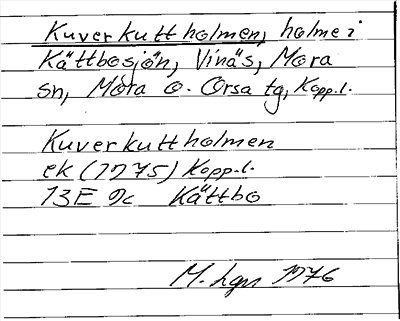 Kuverkuttholmen, holme i
Kättbosjön, Vinäs, Mora
sn, Mora o. Orsa tg, Kopp.l.
Kuverkuttholmen
ek (1975) Kopp.l.
13E 9c Kättbo
M. Lgn 1976